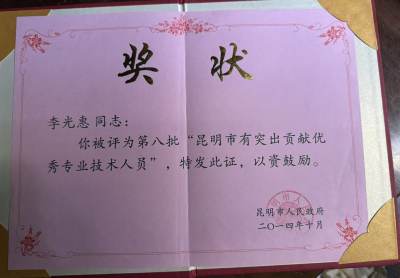 奖状
李光惠同志：
你被评为第八批“昆明市有突出贡献优
秀专业技术人员”，特发此证，以资鼓励。
昆明市人民政府
二〇一四年十月